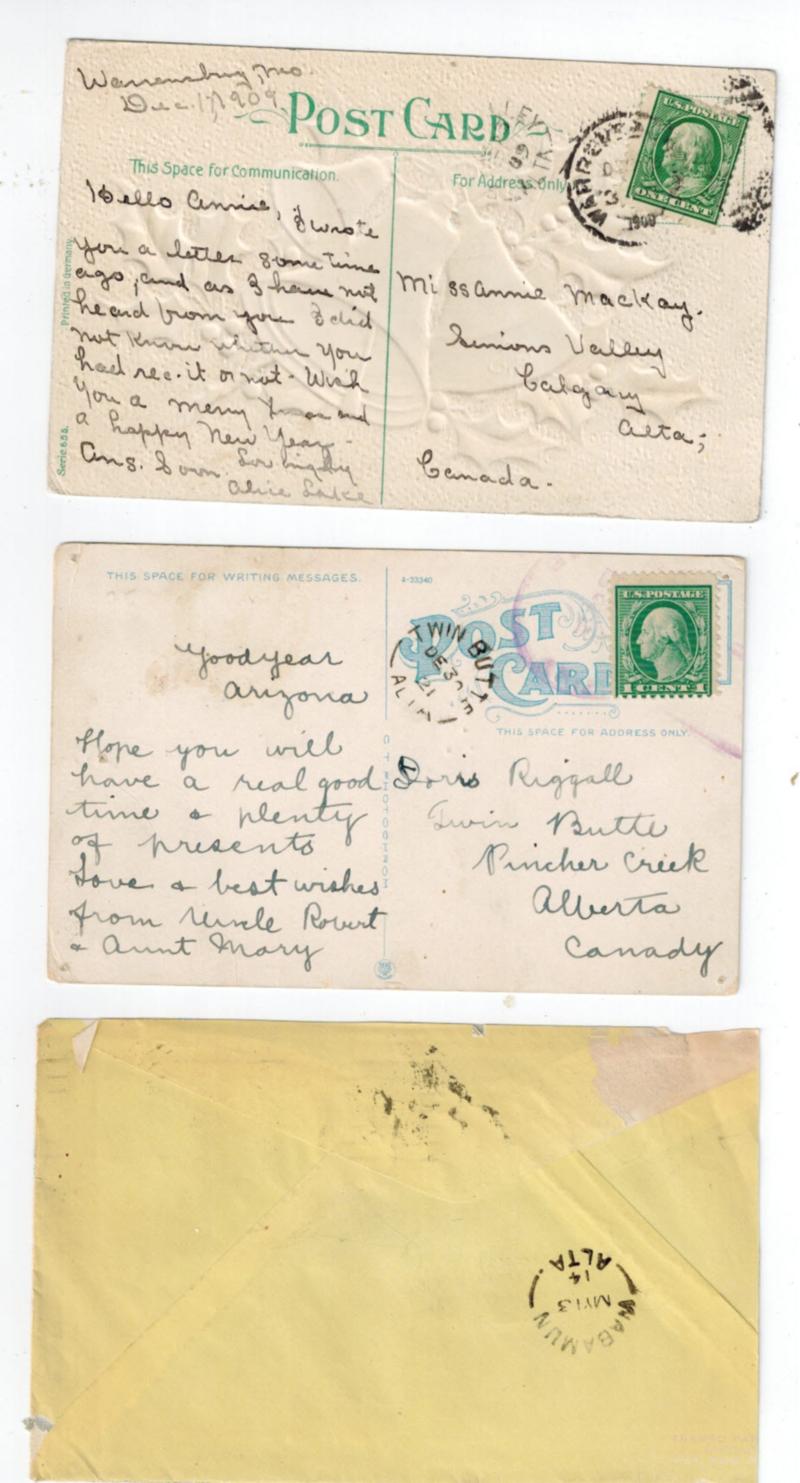 Warrensburg, Mo.
Dec. 17, 1909
POST CARD
This Space for Communication.
For Address Only
U.S. POSTAGE
ONE CENT
1909
Hello Annie, I wrote
you a letter some time
ago, and as I have not
heard from you I did
not know whether you
had rec. it or not. Wish
you a merry Xmas and
a happy New Year.
Ans. Soon. Lovingly
Alice Lake
Printed in Germany
Serie 655.
Miss Annie MacKay.
Simons Valley
Calgary
Alta;
Canada.
THIS SPACE FOR WRITING MESSAGES.
A-33340
POST
CARD
U.S. POSTAGE
1 CENT 1
TWIN BUTTE
DE 30
21
ALTA
THIS SPACE FOR ADDRESS ONLY.
Goodyear
Arizona
Hope you will
have a real good
time & plenty
of presents
Love & best wishes
from Uncle Robert
& Aunt Mary
Doris Riggall
Twin Butte
Pincher Creek
Alberta
Canady
WABAMUN
MY 13
14
ALTA.